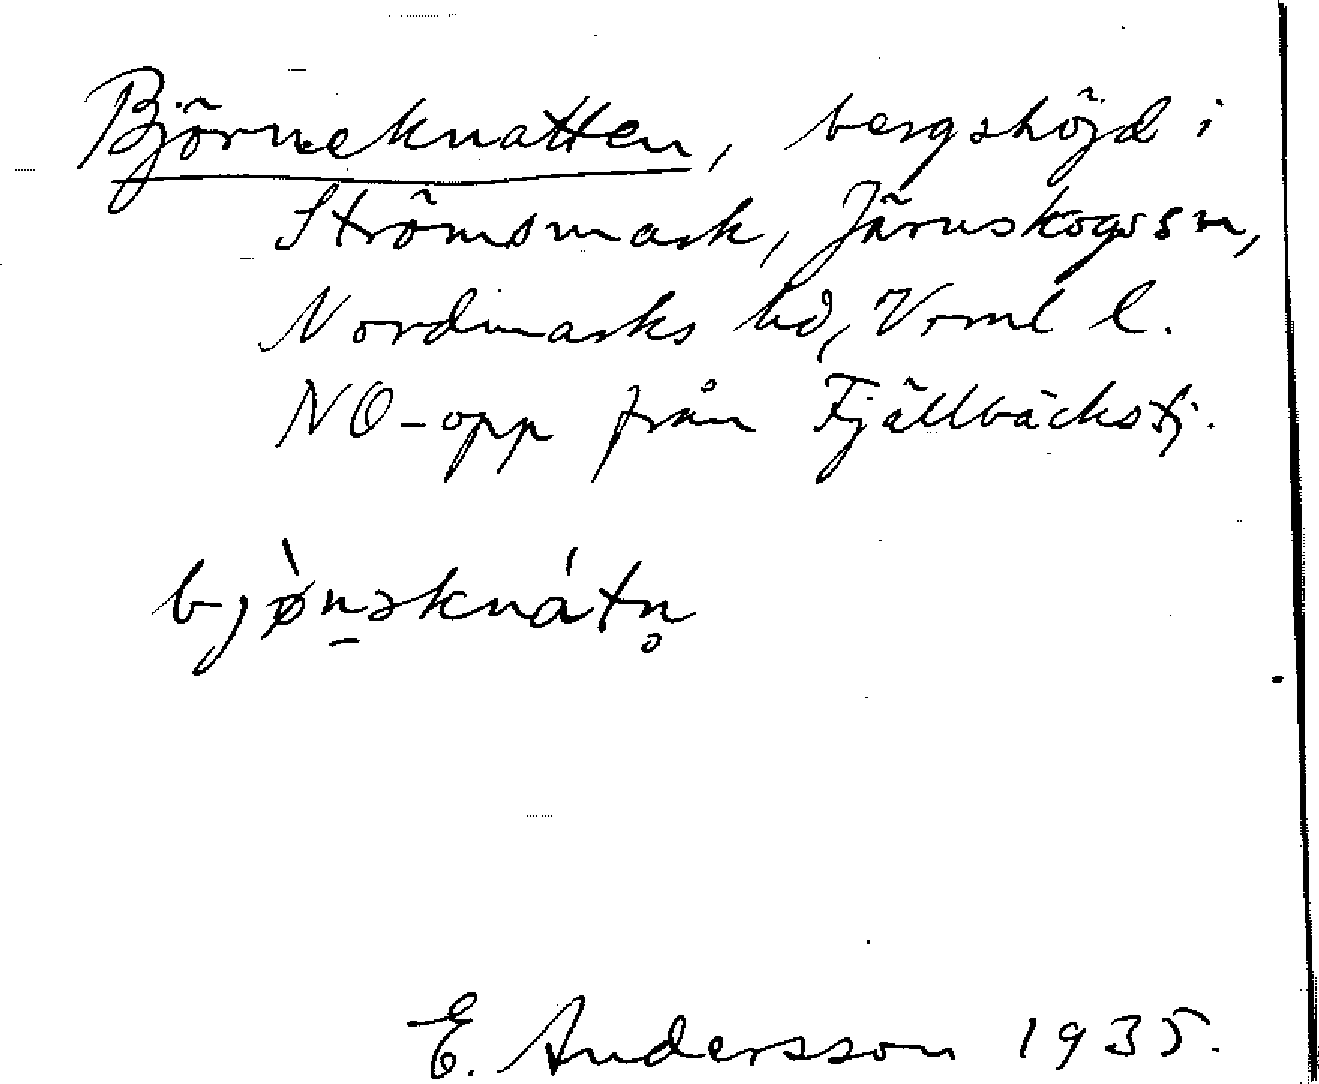 Björneknatten, bergshöjd i
Strömsmark, Järnskogs sn,
Nordmarks hd, Vrml l.
NO-opp från Fjällbäckstj.
bjø̀n̠əknátn̥
E. Andersson 1935.